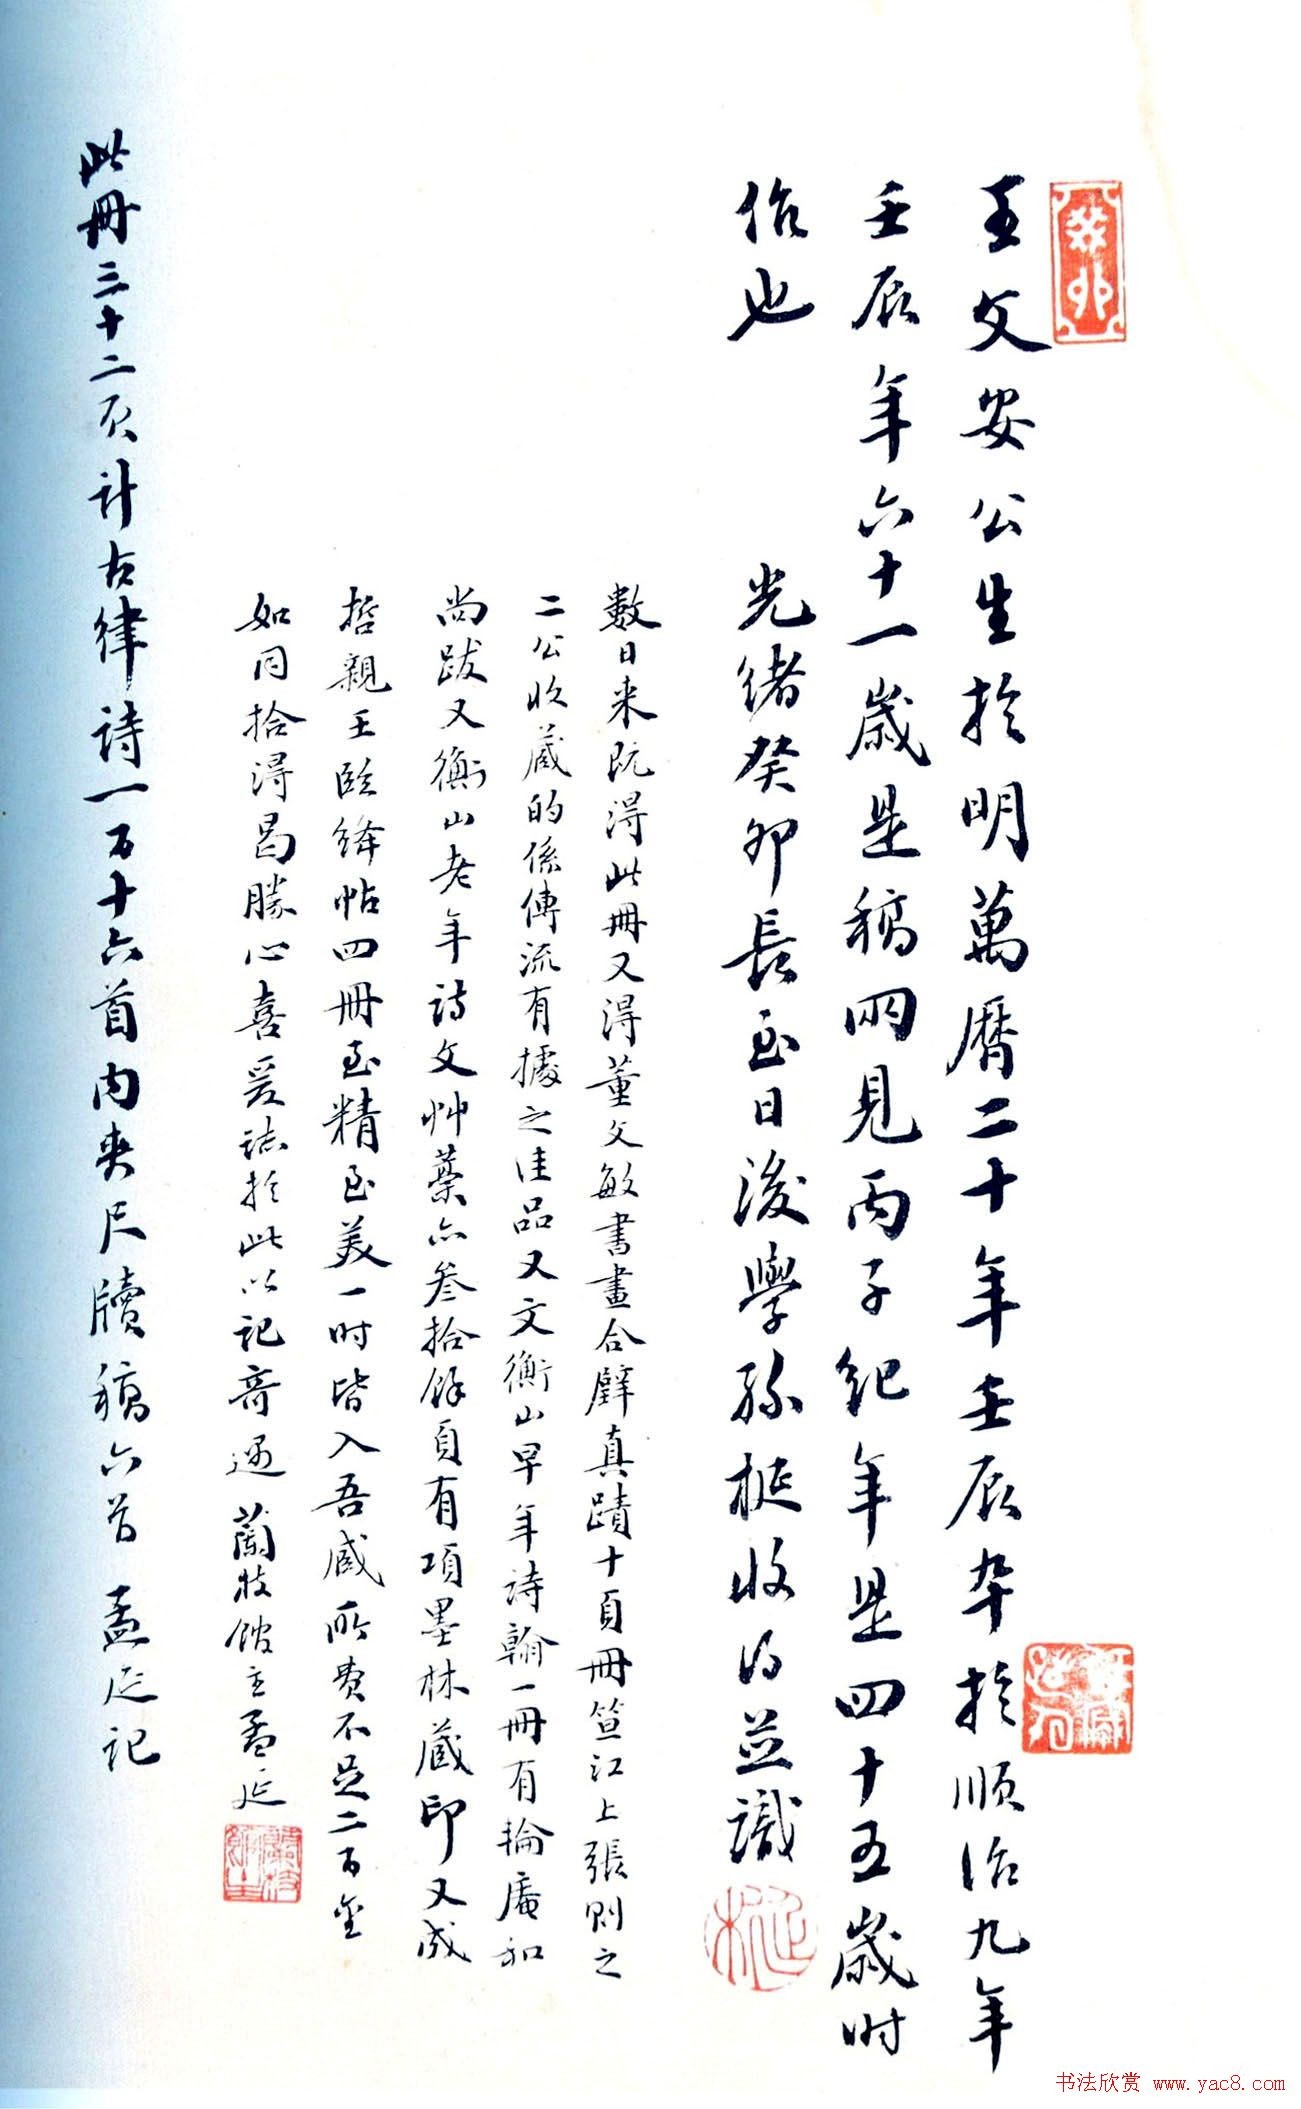 癸卯
王文安公生於明萬曆二十年壬辰卒於順治九年
壬辰年六十一歲是稿兩見丙子紀年是四十五歲时
作也
光绪癸卯長至日後學孫梴收得並識
梴
數日来既得此冊又得董文敏書畫合璧真蹟十頁冊笪江上張則之
二公收蔵的係傳流有據之佳品又文衡山早年詩翰一冊有掄庵和
尚跋又衡山老年詩文艸藁六叁拾餘頁有項墨林蔵印又成
哲親王臨絳帖四冊至精至美一时皆入吾蔵所费不足二百金
如同拾得曷勝心喜爰誌於此以記奇遇 蘭枝館主孟延
此冊三十二页计古律詩一百十六首内夹尺牘稿六首 孟延记
书法欣赏 www.yac8.com